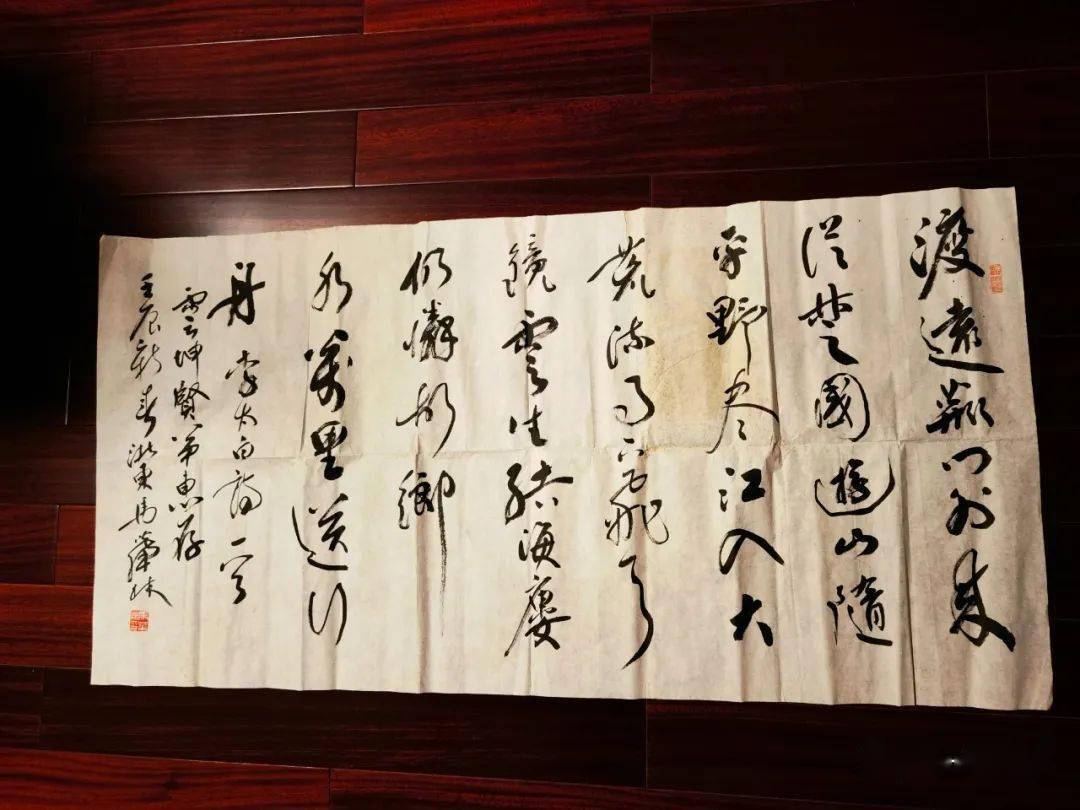 渡遠荊門外来
從楚國遊山隨
平野尽江入大
荒流月下飛天
鏡雲生結海廔
仍憐故鄉
水萬里送行
舟 李太白詩一首
雲坤賢弟惠存
壬辰新春浙東馬林